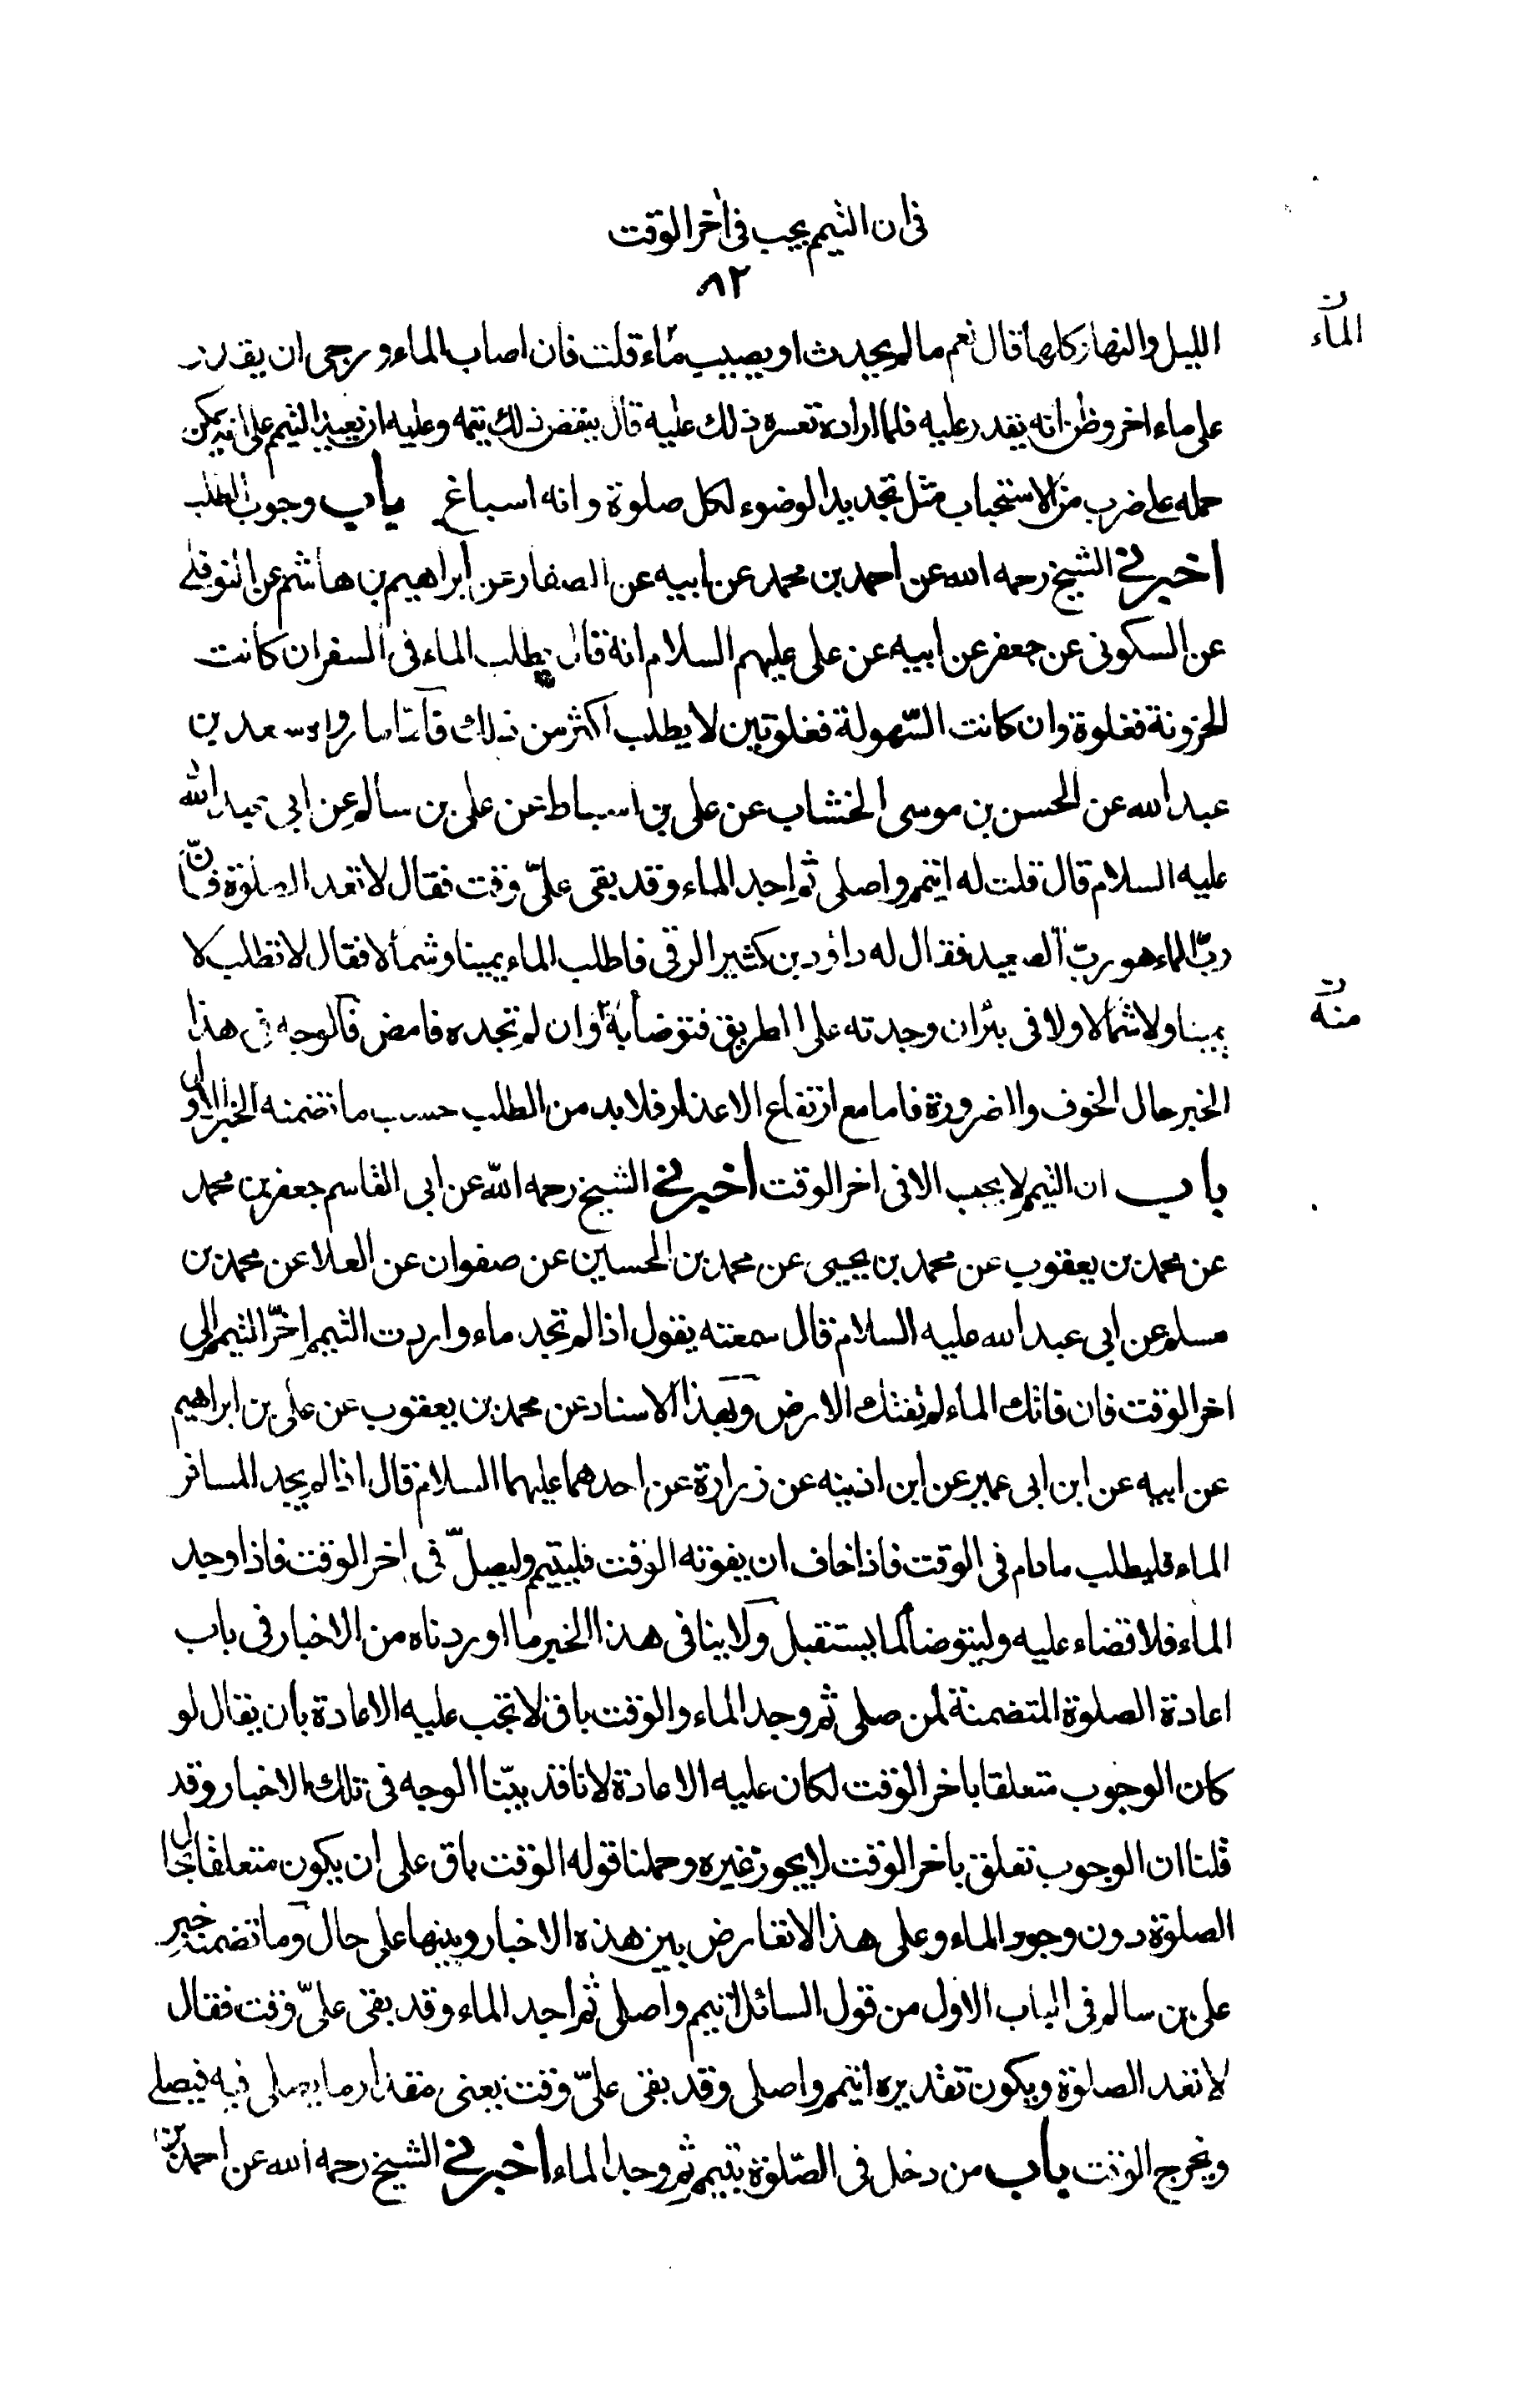 فى ان التيمم يجب فى اخر الوقت
٨٢
الليل والنهار كلها قال نعم ما لم يحدث او يصيب ماء قلت فان اصاب الماء ورجى ان يقدر
الماء
على ماء اخر وظن انه يقدر عليه فلما اراده تعسر ذلك عليه قال ينقض ذلك تيممه وعليه ان يعيد التيمم على انه يمكن
حمله على ضرب من الاستحباب مثل تجديد الوضوء لكل صلوة وانه اسباغ باب وجوب الطلب
اخبرنى الشيخ رحمه الله عن احمد بن محمد عن ابيه عن الصفار عن ابراهيم بن هاشم عن النوفلى
عن السكونى عن جعفر عن ابيه عن على عليهم السلام انه قال يطلب الماء فى السفر ان كانت
الحزونة فغلوة وان كانت السّهولة فغلوتين لا يطلب اكثر من ذلك فامّا ما رواه سعد بن
عبد الله عن الحسن بن موسى الخشاب عن على بن اسباط عن على بن سالم عن ابى عبد الله
عليه السلام قال قلت له اتيمم واصلى ثم اجد الماء وقد بقى علىّ وقت فقال لا تعد الصلوة فانّ
ربّ الماء هو ربّ الصعيد فقال له داود بن كثير الرقى فاطلب الماء يمينا وشمالا فقال لا تطلب لا
يمينا ولا شمالا ولا فى بئر ان وجدته على الطريق فتوضأ به وان لم تجده فامض فالوجه فى هذا
منه
الخبر حال الخوف والضرورة فاما مع ارتفاع الاعذار فلا بد من الطلب حسب ما تضمنه الخبر الاول
باب ان التيمم لا يجب الا فى اخر الوقت اخبرنى الشيخ رحمه الله عن ابى القاسم جعفر بن محمد
عن محمد بن يعقوب عن محمد بن يحيى عن محمد بن الحسين عن صفوان عن العلا عن محمد بن
مسلم عن ابى عبد الله عليه السلام قال سمعته يقول اذا لم تجد ماء واردت التيمم اخّر التيمم الى
اخر الوقت فان فاتك الماء لم تفتك الارض وبهذا الاسناد عن محمد بن يعقوب عن على بن ابراهيم
عن ابيه عن ابن ابى عمير عن ابن اذينه عن زرارة عن احدهما عليهما السلام قال اذا لم يجد المسافر
الماء فليطلب ما دام فى الوقت فاذا خاف ان يفوته الوقت فليتيمم وليصلّ فى اخر الوقت فاذا وجد
الماء فلا قضاء عليه وليتوضأ لما يستقبل ولا ينافى هذا الخبر ما اوردناه من الاخبار فى باب
اعادة الصلوة المتضمنة لمن صلى ثم وجد الماء والوقت باق لا تجب عليه الاعادة بان يقال لو
كان الوجوب متعلقا باخر الوقت لكان عليه الاعادة لانا قد بيّنا الوجه فى تلك الاخبار وقد
قلنا ان الوجوب تعلق باخر الوقت لا يجوز غيره وحملنا قوله الوقت باق على ان يكون متعلقا بحال
الصلوة دون وجود الماء وعلى هذا لا تعارض بين هذه الاخبار وبينها على حال وما تضمنه خبر
على بن سالم فى الباب الاول من قول السائل اتيمم واصلى ثم اجد الماء وقد بقى علىّ وقت فقال
لا تعد الصلوة ويكون تقديره اتيمم واصلى وقد بقى علىّ وقت يعنى مقدار ما يصلى فيه فيصلى
ويخرج الوقت باب من دخل فى الصّلوة بتيمم ثم وجد الماء اخبرنى الشيخ رحمه الله عن احمد بن